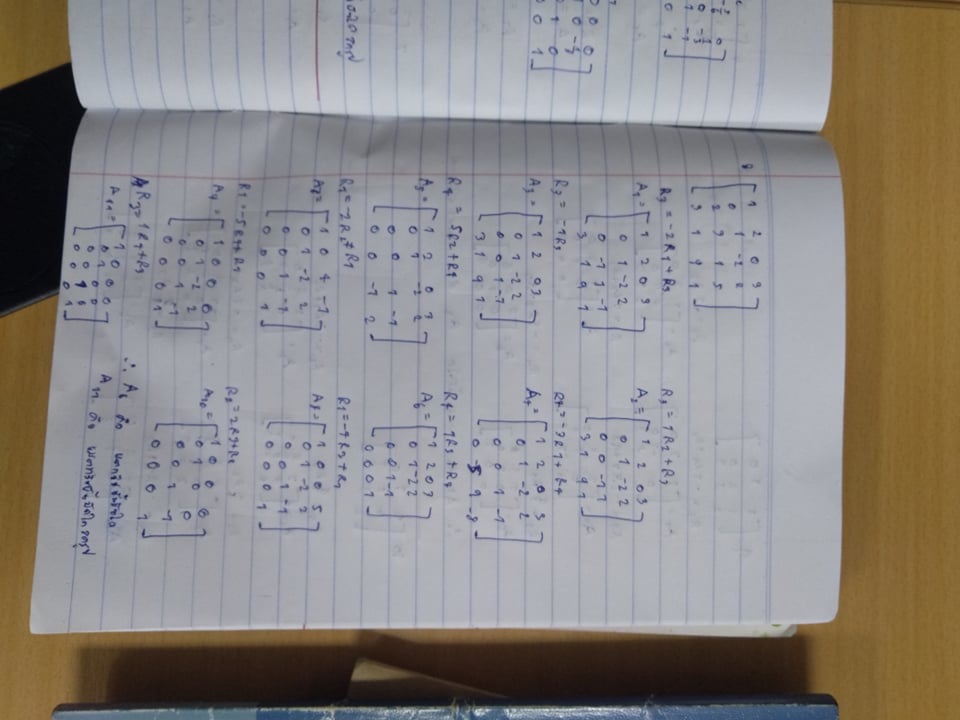 8
1 2 0 3
0 1 -2 2
2 3 1 5
3 1 9 1
R3 = -2R1+R3
A1 =
1 2 0 3
0 1 -2 2
0 -1 1 -1
3 1 9 1
R3 = 1R2+R3
A2 =
1 2 0 3
0 1 -2 2
0 0 -1 1
3 1 9 1
R3 = -1R3
A3 =
1 2 0 3
0 1 -2 2
0 0 1 -1
3 1 9 1
R4 = -3R1+R4
A4 =
1 2 0 3
0 1 -2 2
0 0 1 -1
0 -5 9 -8
R4 = 5R2+R4
A5 =
1 2 0 3
0 1 -2 2
0 0 1 -1
0 0 -1 2
R4 = 1R3+R4
A6 =
1 2 0 3
0 1 -2 2
0 0 1 -1
0 0 0 1
R1 = -2R2+R1
1 0 4 -1
0 1 -2 2
0 0 1 -1
0 0 0 1
R1 = -4R3+R1
A8 =
1 0 0 5
0 1 -2 2
0 0 1 -1
0 0 0 1
R1 = -5R4+R1
A9 =
1 0 0 0
0 1 -2 2
0 0 1 -1
0 0 0 1
R2 = 2R3+R2
A10 =
1 0 0 0
0 1 0 0
0 0 1 -1
0 0 0 1
R3 = 1R4+R3
A11 =
1 0 0 0
0 1 0 0
0 0 1 0
0 0 0 1
∴ A6 คือ เมทริกซ์ขั้นบันได
A11 คือ เมทริกซ์ขั้นบันไดลดรูป